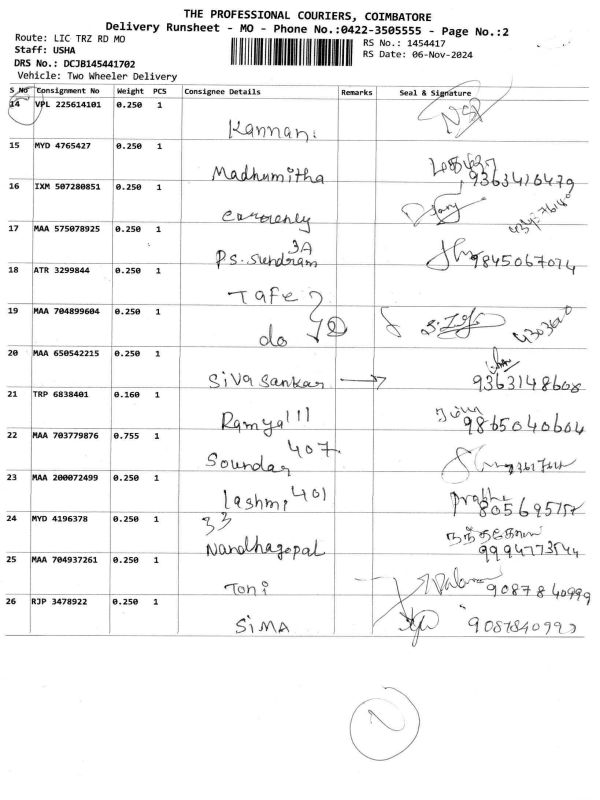 THE PROFESSIONAL COURIERS, COIMBATORE
Delivery Runsheet - MO - Phone No.:0422-3505555 - Page No.:2
Route: LIC TRZ RD MO
RS No.: 1454417
Staff: USHA
RS Date: 06-Nov-2024
DRS No.: DCJB145441702
Vehicle: Two Wheeler Delivery
S No Consignment No Weight PCS Consignee Details Remarks Seal & Signature
14 VPL 225614101 0.250 1
Kannan
15 MYD 4765427 0.250 1
Madhumitha
9363416479
16 IXM 507280851 0.250 1
17 MAA 575078925 0.250 1
3A
P.S. Sundram
9845067074
18 ATR 3299844 0.250 1
TAFE
19 MAA 704899604 0.250 1
do 2
20 MAA 650542215 0.250 1
Siva Sankar
9363148608
21 TRP 6838401 0.160 1
Ramya 111
ரம்யா
9865040604
22 MAA 703779876 0.755 1
Soundar 407
23 MAA 200072499 0.250 1
lashmi 401
24 MYD 4196378 0.250 1
33
Nandhagopal
நந்தகோபால்
25 MAA 704937261 0.250 1
Toni
9087840999
26 RJP 3478922 0.250 1
SIMA
2